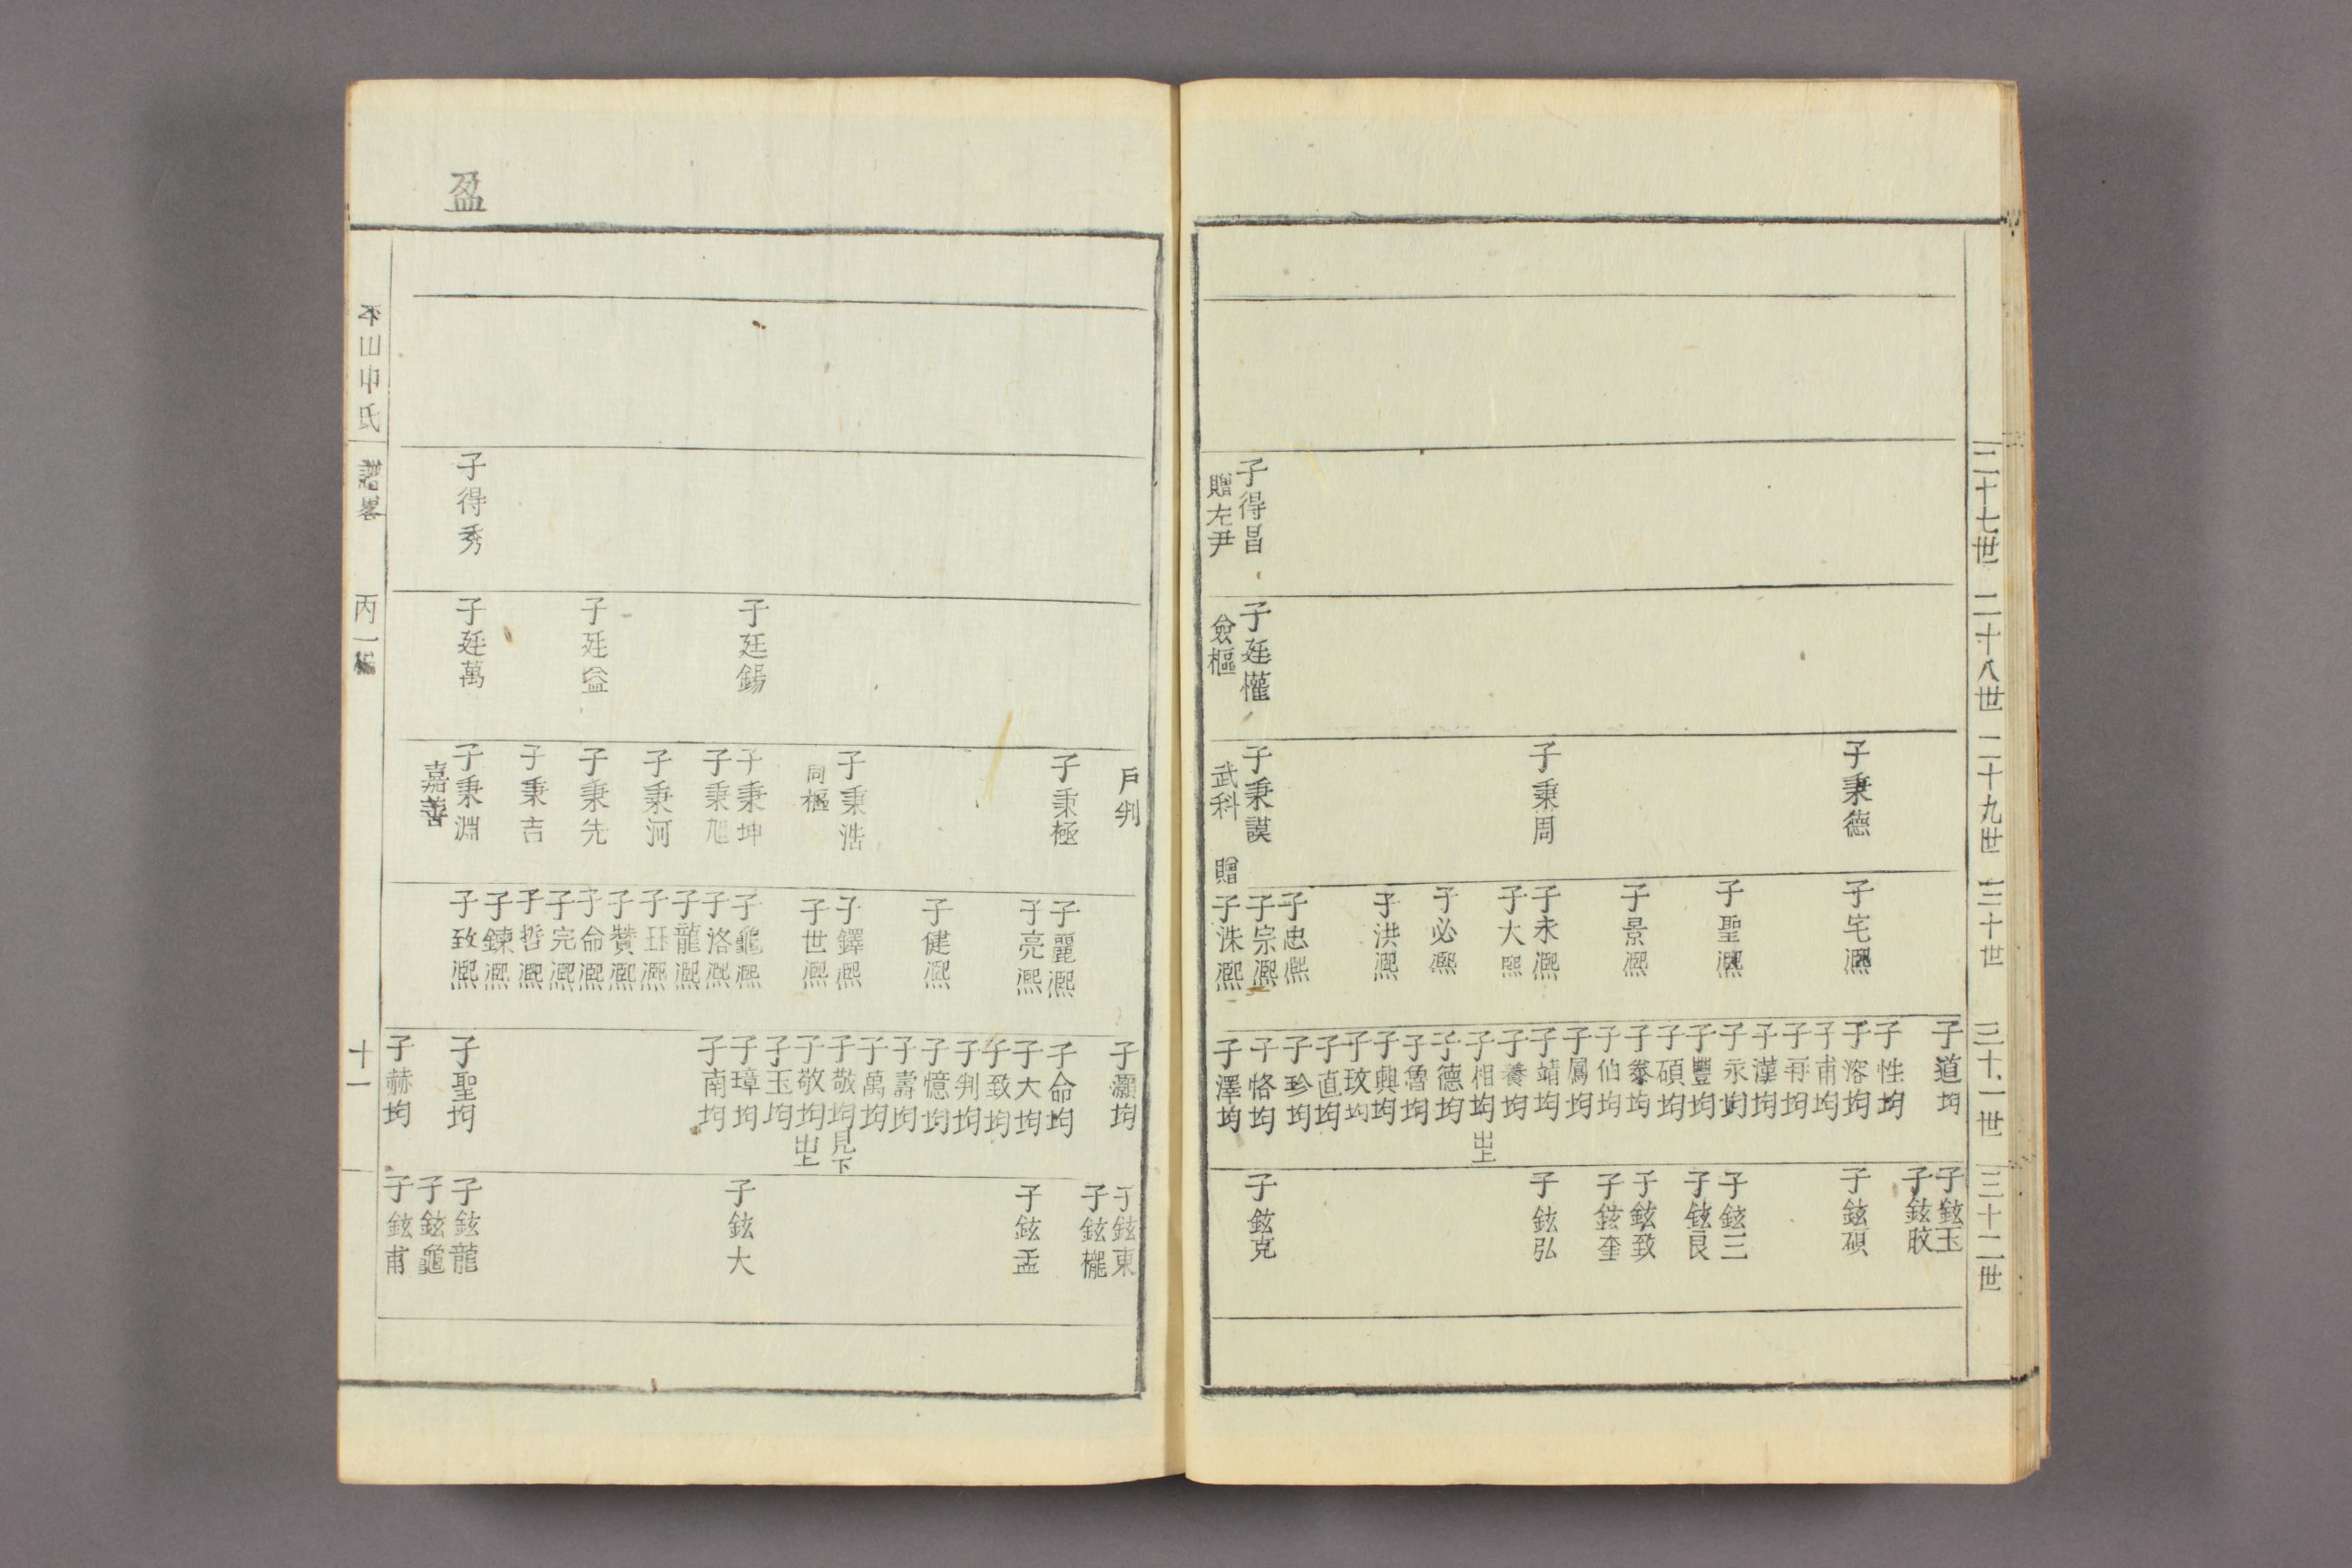 三十七世
二十八世
二十九世
三十世
三十一世
三十二世
子得昌
贈左尹
子廷懽
僉樞
子秉德
子秉周
子秉謨
武科
贈
子宅凞
子聖凞
子景凞
子永凞
子大熙
子必凞
子洪凞
子忠凞
子宗凞
子洙凞
子道均
子性均
子溶均
子甫均
子再均
子漢均
子永均
子豐均
子碩均
子泰均
子伯均
子鳳均
子靖均
子養均
子相均出上
子德均
子魯均
子興均
子玟均
子直均
子珍均
子恪均
子澤均
子鉉玉
子鉉胶
子鉉碩
子鉉三
子鉉良
子鉉致
子鉉奎
子鉉弘
子鉉克
盈
子得秀
子廷錫
子廷益
子廷萬
戶判
子秉極
子秉浩
同樞
子秉坤
子秉旭
子秉河
子秉先
子秉吉
子秉淵
嘉善
子麗凞
子亮凞
子健凞
子鐸凞
子世凞
子龜凞
子洛凞
子龍凞
子玨凞
子贊凞
子命凞
子完凞
子哲凞
子鍊凞
子致凞
子灝均
子命均
子大均
子致均
子判均
子憶均
子壽均
子萬均
子敬均見下
子敬均出上
子玉均
子璋均
子南均
子聖均
子赫均
子鉉東
子鉉櫳
子鉉孟
子鉉大
子鉉龍
子鉉龜
子鉉甫
平山申氏
譜畧
丙一編
十一